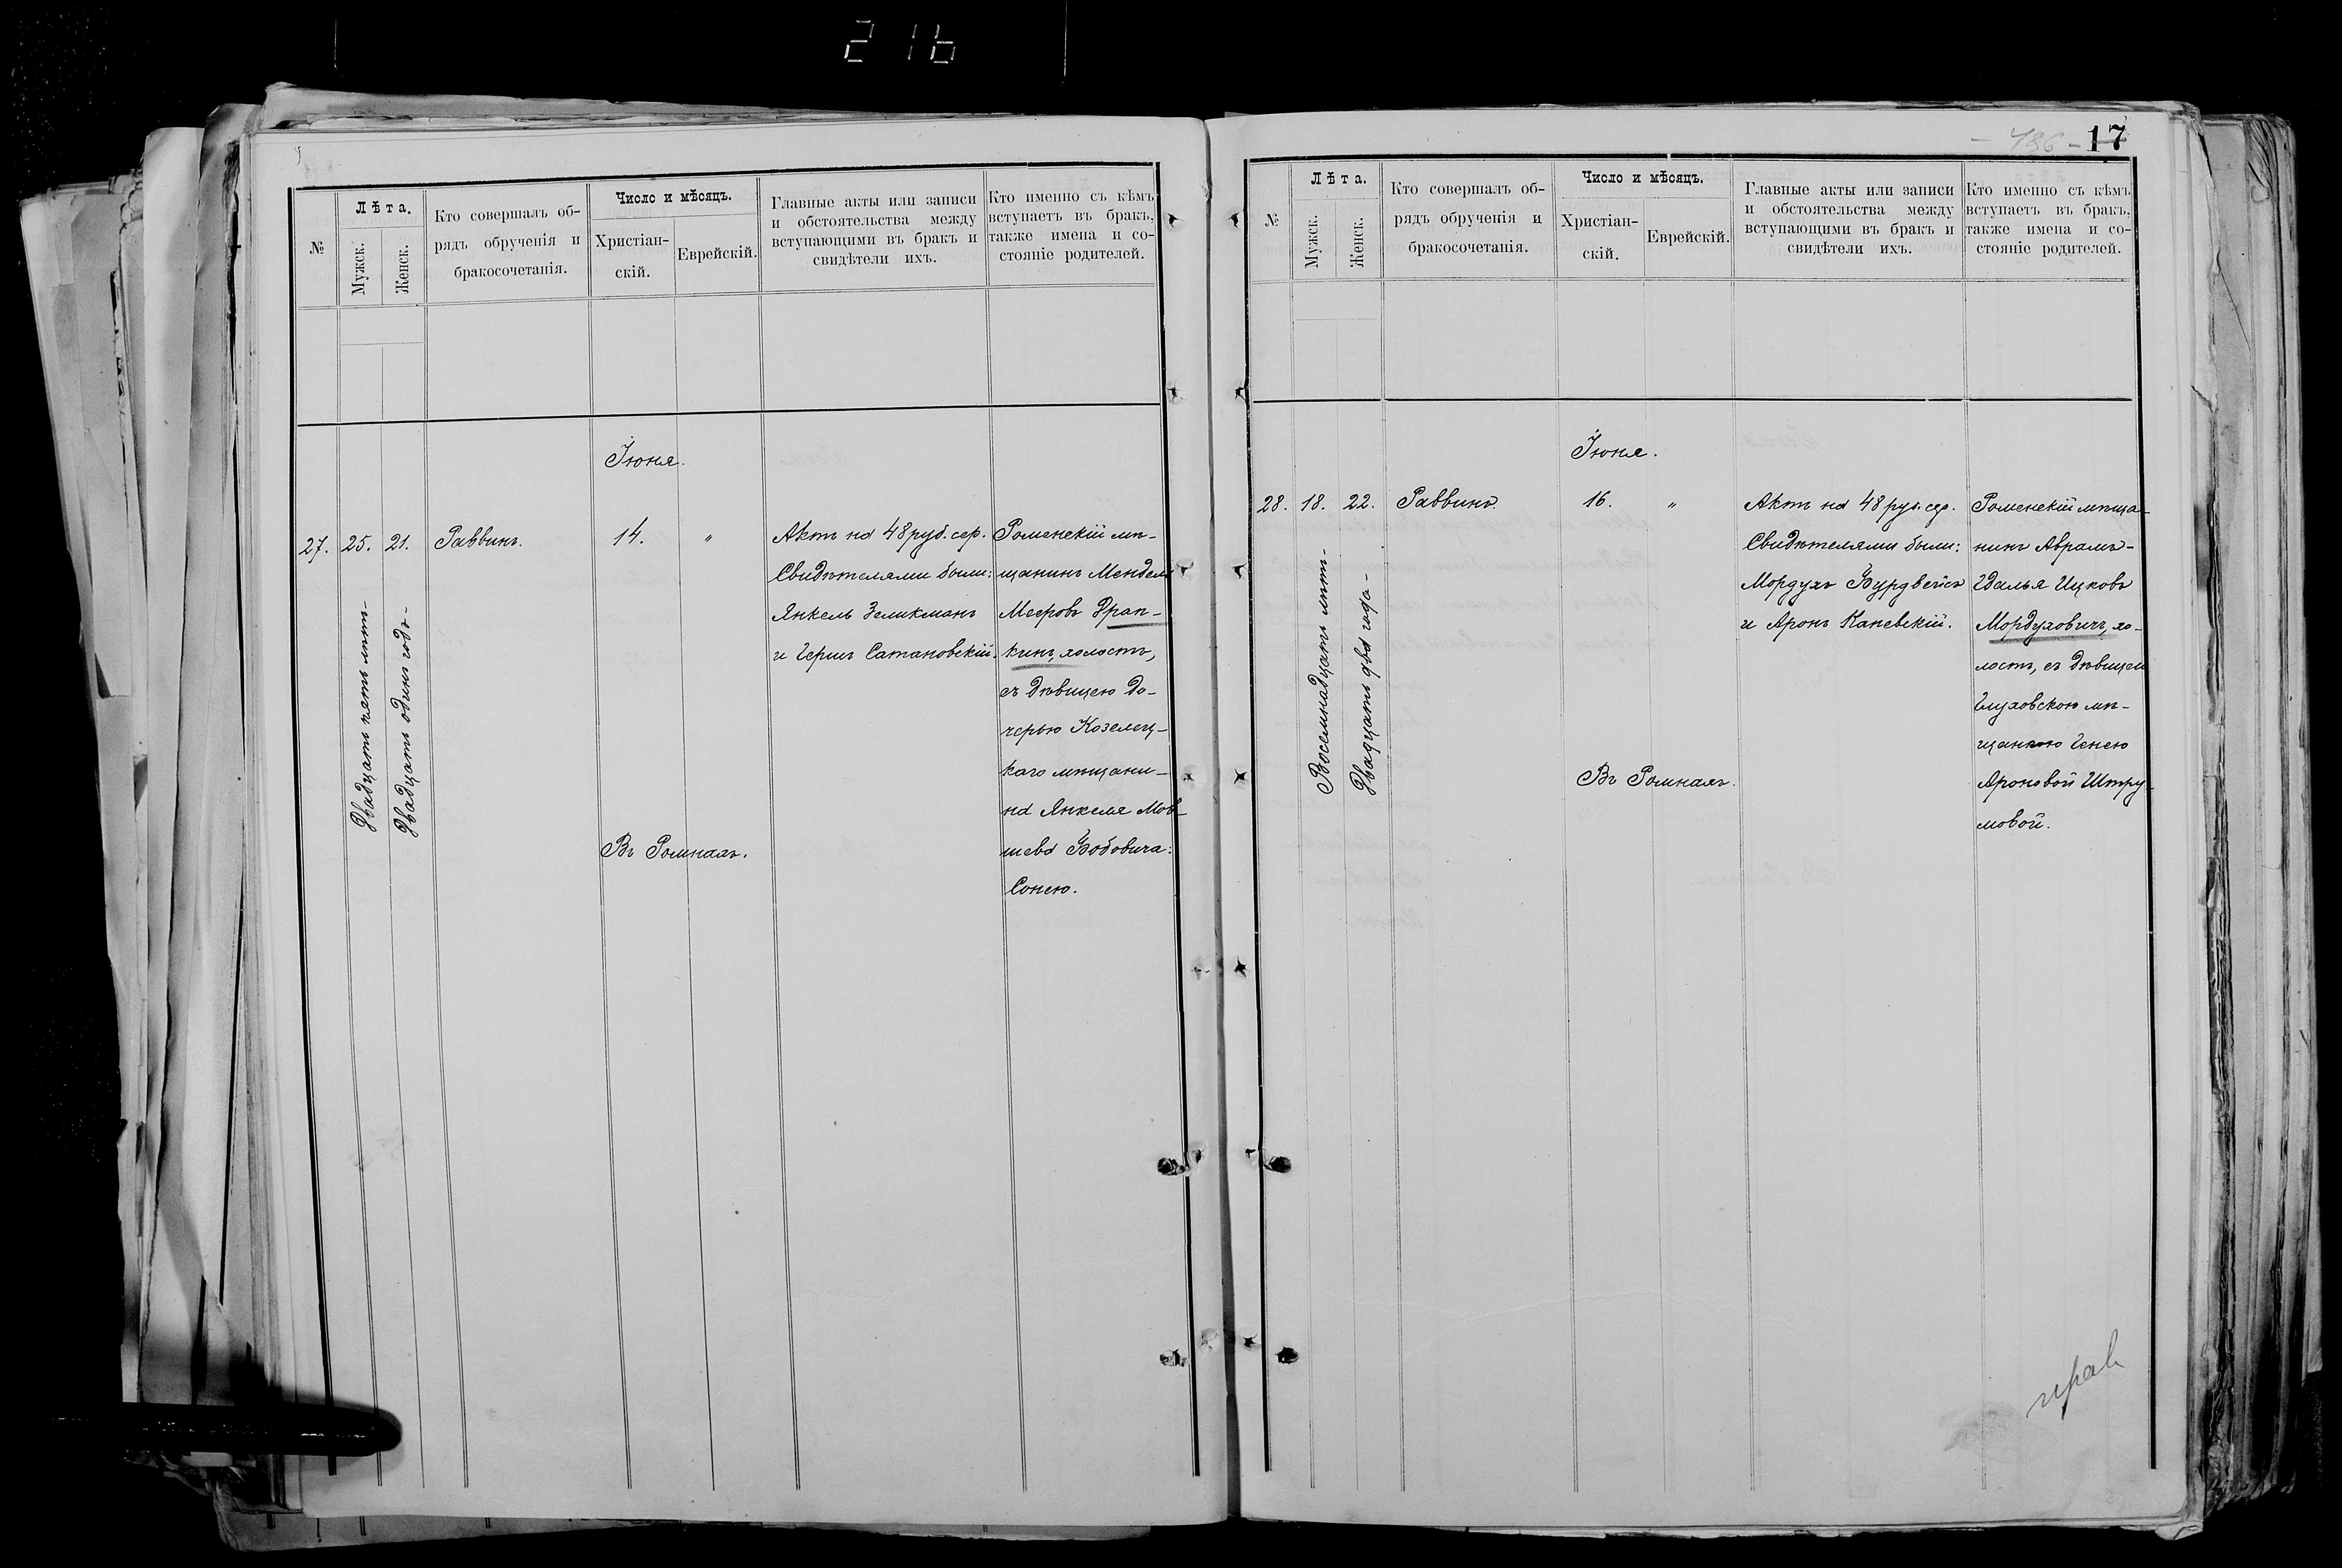 216
№
Лѣта.
Мужск.
Женск.
Кто совершалъ об-
рядъ обрученія и
бракосочетанія.
Число и мѣсяцъ.
Христіан-
скій.
Еврейскій.
Главные акты или записи
и обстоятельства между
вступающими въ бракъ и
свидѣтели ихъ.
Кто именно съ кѣмъ
вступаетъ въ бракъ,
также имена и со-
стояніе родителей.
Іюня.
27. 25. 21. Раввинъ. 14. "
Двадцать пять лѣтъ-
Двадцать одинъ годъ-
Въ Ромнахъ.
Актъ на 48 руб. сер.
Свидѣтелями были:
Янкель Зеликманъ
и Гершъ Сатановскій.
Роменскій мѣ-
щанинъ Мендель
Мееровъ Драп-
кинъ, холостъ,
съ дѣвицею до-
черью Козелец-
каго мѣщани-
на Янкеля Мов-
шева Бобовича:
Сонею.
17
№
Лѣта.
Мужск.
Женск.
Кто совершалъ об-
рядъ обрученія и
бракосочетанія.
Число и мѣсяцъ.
Христіан-
скій.
Еврейскій.
Главные акты или записи
и обстоятельства между
вступающими въ бракъ и
свидѣтели ихъ.
Кто именно съ кѣмъ
вступаетъ въ бракъ,
также имена и со-
стояніе родителей.
Іюня.
28. 18. 22. Раввинъ. 16. "
Восемнадцать лѣтъ-
Двадцать два года-
Въ Ромнахъ.
Актъ на 48 руб. сер.
Свидѣтелями были:
Мордухъ Бурдвейсъ
и Аронъ Каневскій.
Роменскій мѣща-
нинъ Абрамъ-
Гдалья Ицковъ
Мордуховичъ, хо-
лостъ, съ дѣвицею
Глуховскою мѣ-
щанкою Генею
Ароновой Штру-
мовой.